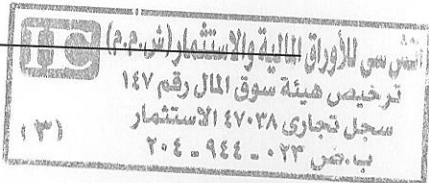 سي للأوراق المالية والاستثمار (ش.م.م)
ترخيص هيئة سوق المال رقم ١٤٧
سجل تجارى ٤٧٠٣٨ الاستثمار
ب.ض ٠٢٣ - ٩٤٤ - ٢٠٤
(٣)